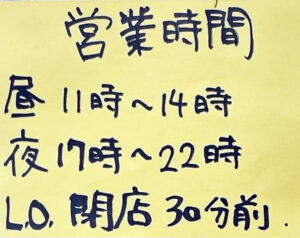 営業時間
昼 11時～14時
夜 17時～22時
L.O. 閉店 30分前.